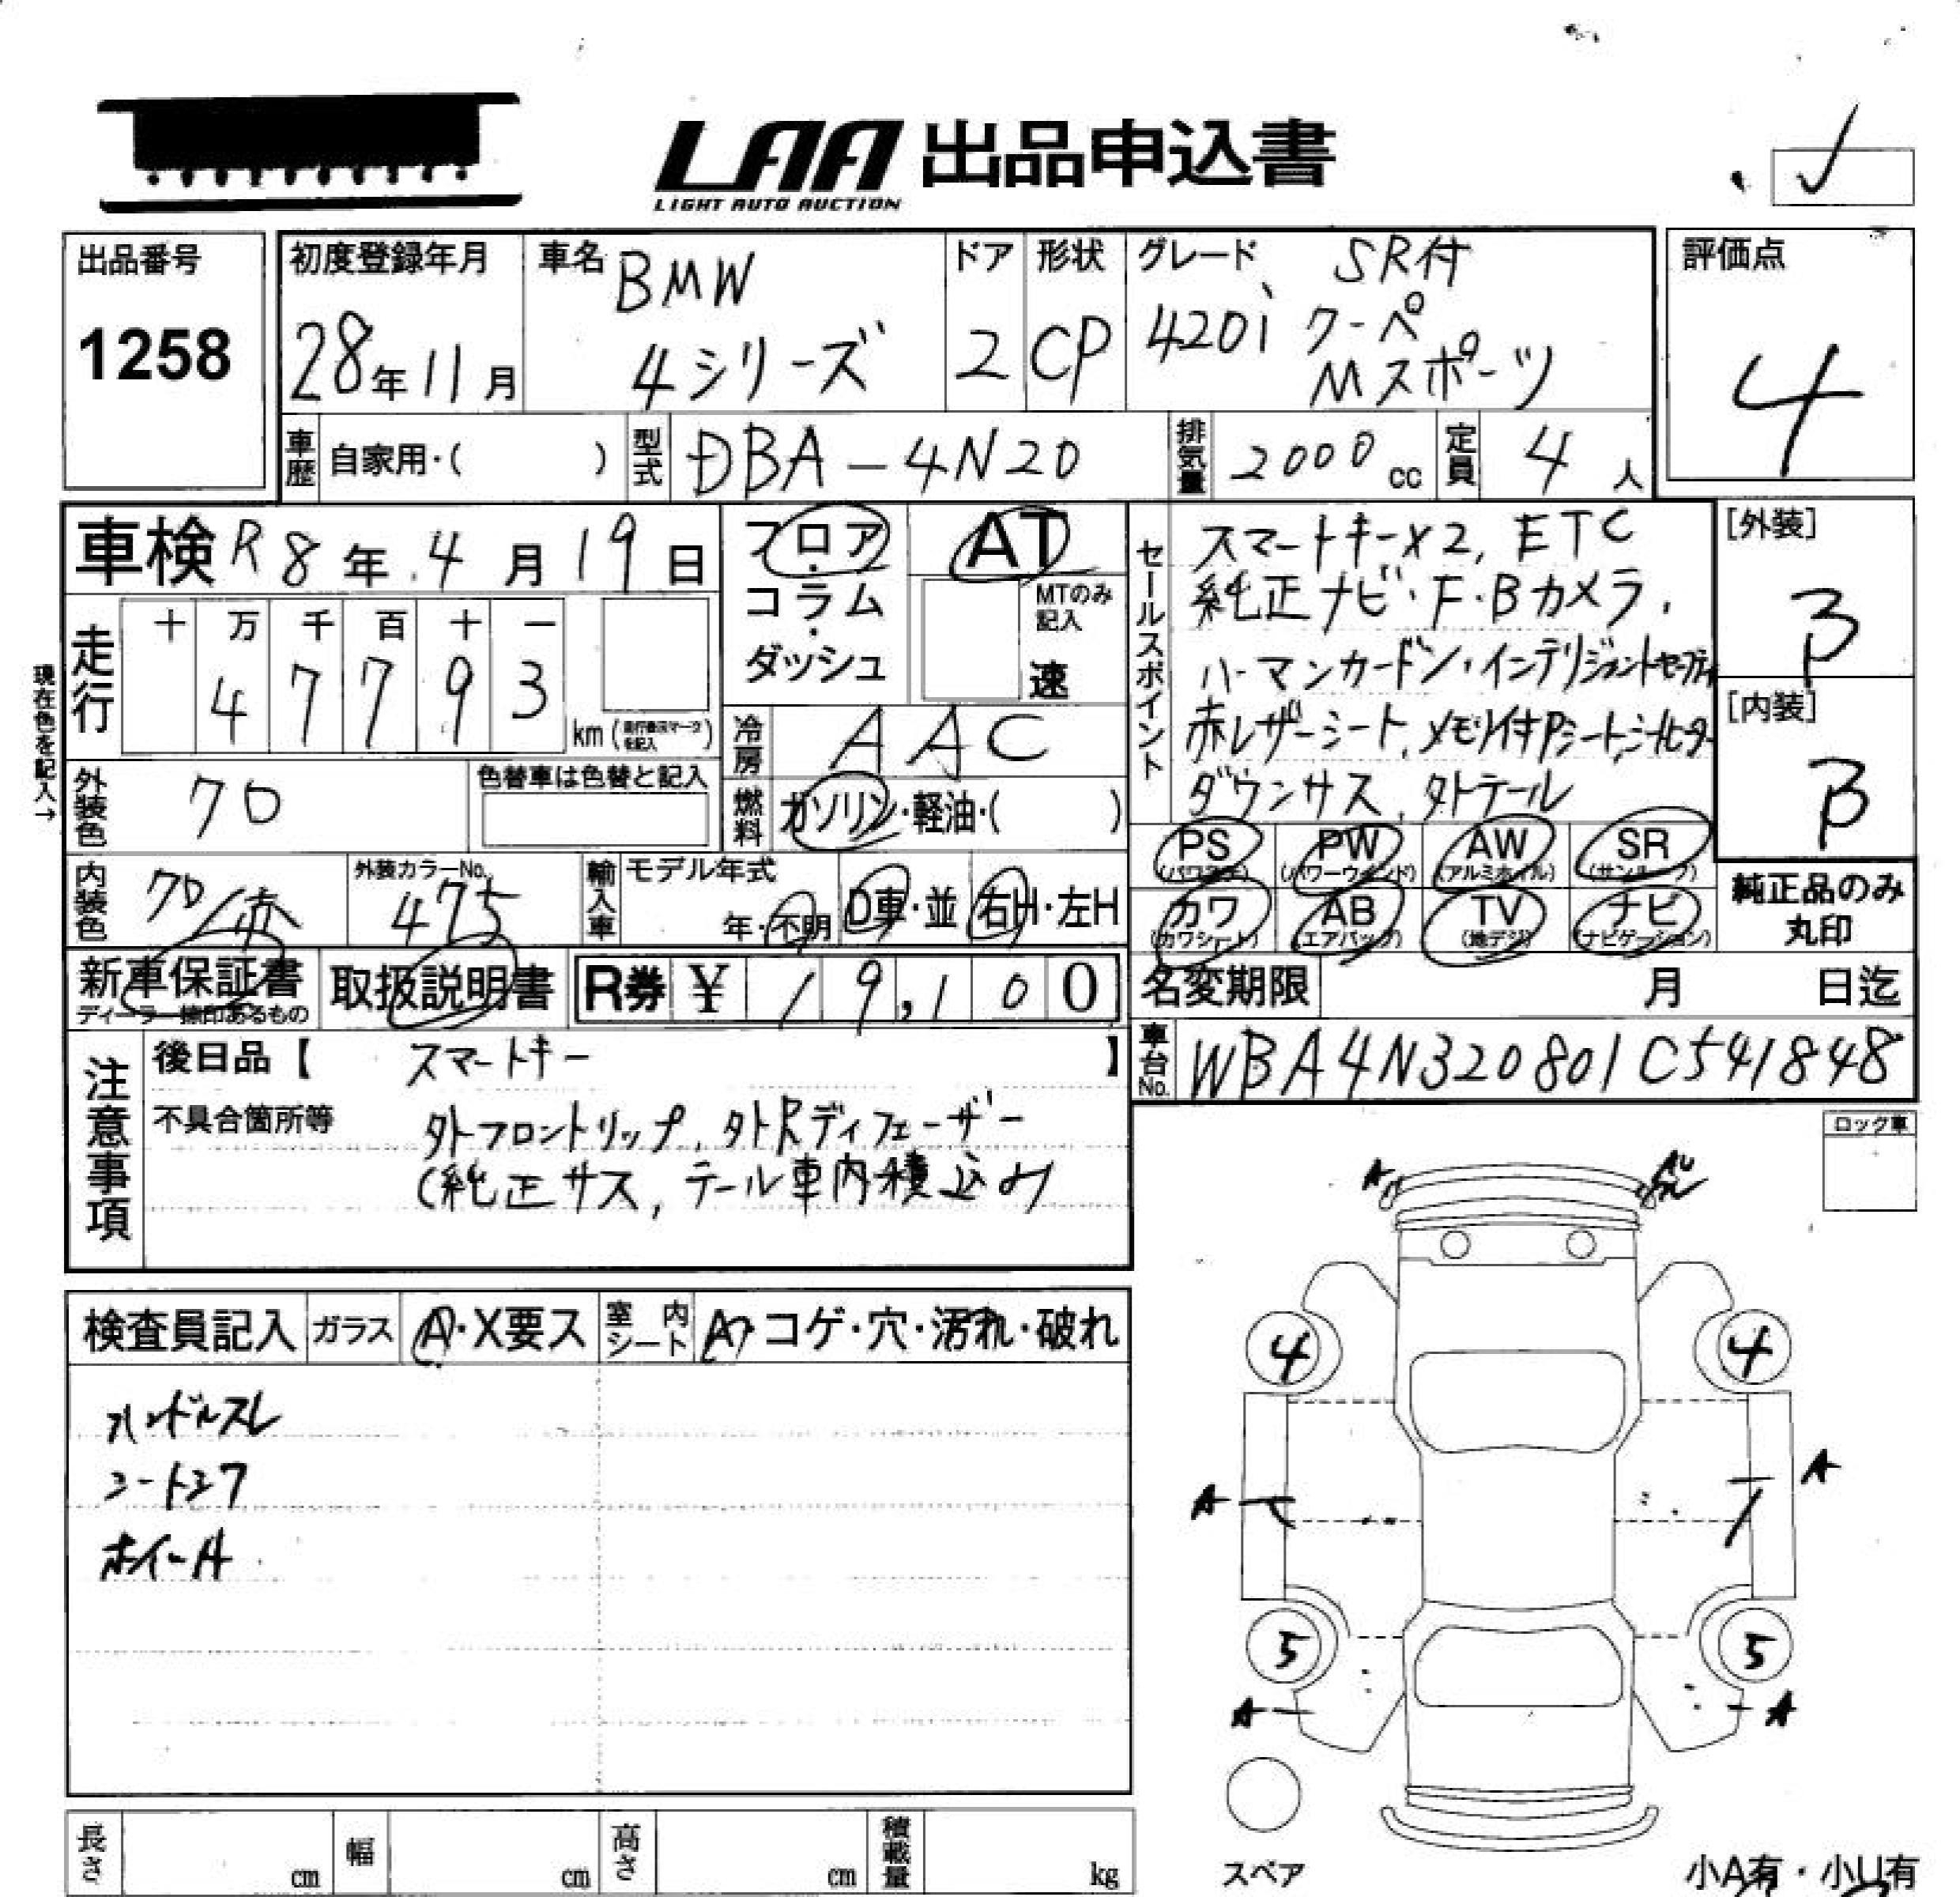 LAA 出品申込書
LIGHT AUTO AUCTION
出品番号
1258
初度登録年月
28年11月
車名
BMW
4シリーズ
ドア
2
形状
CP
グレード
SR付
420i クーペ
Mスポーツ
評価点
4
車歴
自家用・( )
型式
DBA-4N20
排気量
2000cc
定員
4人
車検 R8年4月19日
フロア
コラム
ダッシュ
AT
MTのみ記入
速
セールスポイント
スマートキー×2, ETC
純正ナビ・F・Bカメラ,
ハーマンカードン・インテリジェントセーフティ
赤レザーシート, メモリ付Pシート, シートヒーター
ダウンサス, 外テール
[外装]
B
[内装]
B
現在色を記入→
走行
十 万 千 百 十 一
4 7 7 9 3
km
冷房
AAC
外装色
クロ
色替車は色替と記入
燃料
ガソリン・軽油・( )
PS
PW
(パワーウインド)
AW
(アルミホイル)
SR
(サンルーフ)
カワ
(カワシート)
AB
(エアバッグ)
TV
(地デジ)
ナビ
(ナビゲーション)
純正品のみ
丸印
内装色
クロ/赤
外装カラーNo.
475
輸入車
モデル年式
年・不明
D車・並
右H・左H
新車保証書
ディーラー捺印あるもの
取扱説明書
R券 ¥ 19,100
名変期限 月 日迄
車台No.
WBA4N320801C541848
注意事項
後日品【 スマートキー 】
不具合箇所等
外フロントリップ, 外Rディフューザー
(純正サス, テール車内積込み)
ロック車
A
A
4
4
A
A
5
5
A
A
スペア
小A有・小U有
検査員記入
ガラス
A・X要ス
室内シート
A・コゲ・穴・汚れ・破れ
ハンドルスレ
シートシワ
ホイールA
長さ cm
幅 cm
高さ cm
積載量 kg